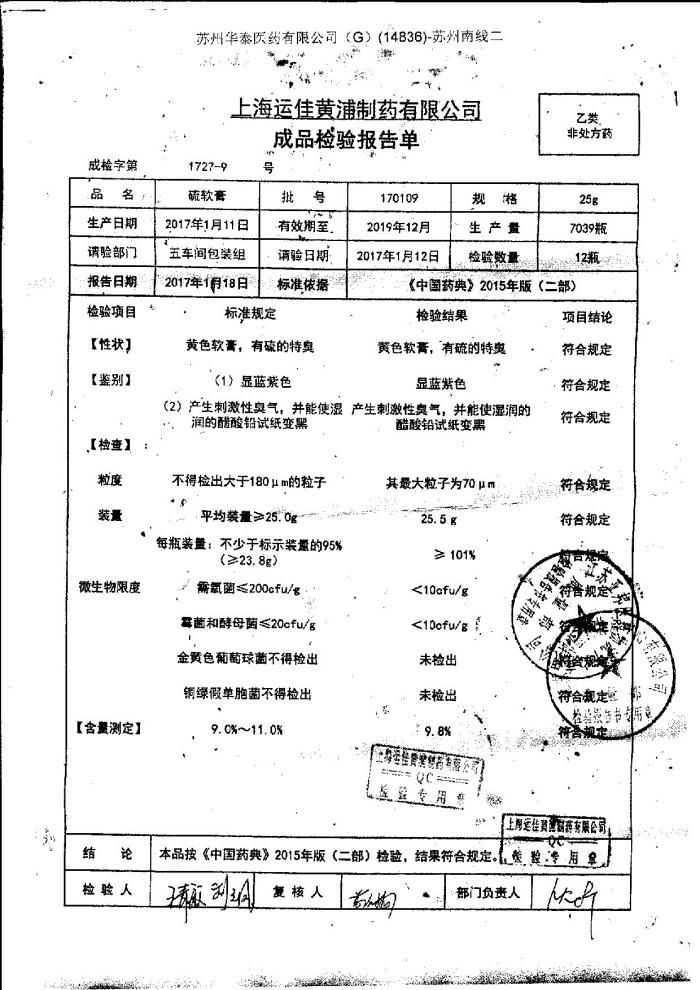 苏州华泰医药有限公司（G）(14836)-苏州南线二
上海运佳黄浦制药有限公司
成品检验报告单
乙类
非处方药
成检字第 1727-9 号
品 名 硫软膏 批 号 170109 规 格 25g
生产日期 2017年1月11日 有效期至 2019年12月 生 产 量 7039瓶
请验部门 五车间包装组 请验日期 2017年1月12日 检验数量 12瓶
报告日期 2017年1月18日 标准依据 《中国药典》2015年版（二部）
检验项目 标准规定 检验结果 项目结论
【性状】 黄色软膏，有硫的特臭 黄色软膏，有硫的特臭 符合规定
【鉴别】 （1）显蓝紫色 显蓝紫色 符合规定
（2）产生刺激性臭气，并能使湿 产生刺激性臭气，并能使湿润的 符合规定
润的醋酸铅试纸变黑 醋酸铅试纸变黑
【检查】：
粒度 不得检出大于180μm的粒子 其最大粒子为70μm 符合规定
装量 平均装量≥25.0g 25.5g 符合规定
每瓶装量：不少于标示装量的95% ≥101% 符合规定
（≥23.8g）
微生物限度 需氧菌≤200cfu/g <10cfu/g 符合规定
霉菌和酵母菌≤20cfu/g <10cfu/g 符合规定
金黄色葡萄球菌不得检出 未检出 符合规定
铜绿假单胞菌不得检出 未检出 符合规定
【含量测定】 9.0%～11.0% 9.8% 符合规定
检验报告书专用章
上海运佳黄浦制药有限公司
QC
检验专用章
上海运佳黄浦制药有限公司
QC
检验专用章
结 论 本品按《中国药典》2015年版（二部）检验，结果符合规定。
检 验 人 复 核 人 部门负责人